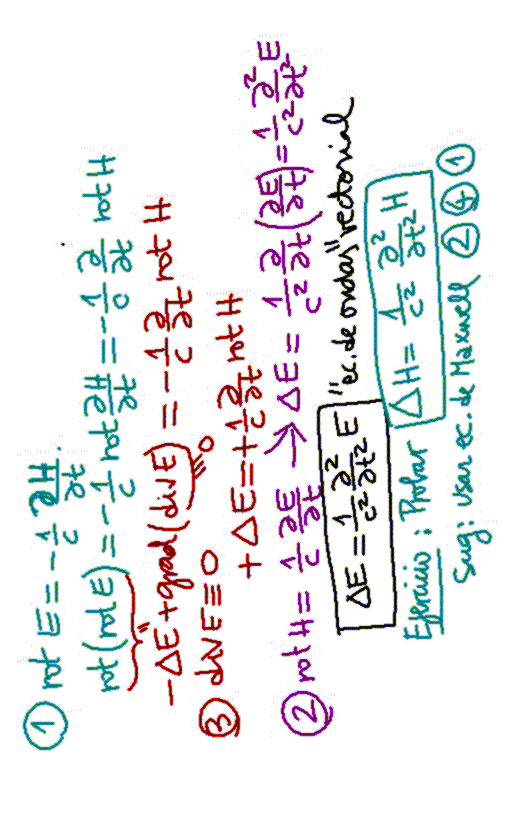 ① rot E = -1/c ∂H/∂t.
rot(rot E) = -1/c rot ∂H/∂t = -1/c ∂/∂t rot H
-ΔE + grad(div E) = -1/c ∂/∂t rot H
③ div E ≡ 0
0
+ΔE = +1/c ∂/∂t rot H
② rot H = 1/c ∂E/∂t → ΔE = 1/c² ∂/∂t (∂E/∂t) = 1/c² ∂²/∂t² E
ΔE = 1/c² ∂²/∂t² E "ec. de ondas" vectorial
Ejercicio: Probar ΔH = 1/c² ∂²/∂t² H
Sug: Usar ec. de Maxwell ② ④ ①